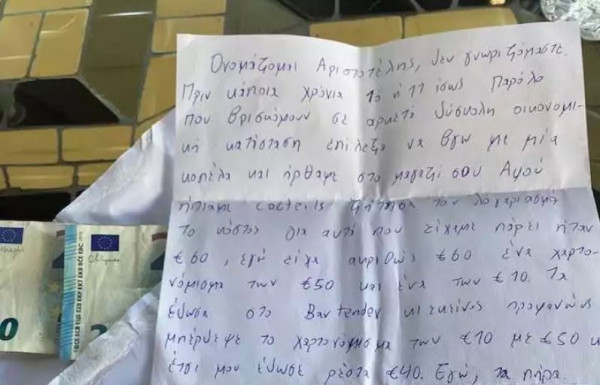 Ονομάζομαι Αριστοτέλης, δεν γνωριζόμαστε.
Πριν κάποια χρόνια 10 ή 11 ίσως Παρόλο
που βρισκόμουν σε αρκετά δύσκολη οικονομι-
κή κατάσταση επέλεξα να βγω με μία
κοπέλα και ήρθαμε στο μαγαζί σου Αφού
ήπιαμε cocteils ζήτησα τον λογαριασμό
Το κόστος για αυτά που είχαμε πάρει ήταν
€60, εγώ είχα ακριβώς €60 ένα χαρτο-
νόμισμα των €50 και ένα των €10. Τα
έδωσα στο Bartender κι εκείνος προφανώς
μπέρδεψε το χαρτονόμισμα των €10 με €50 κ
έτσι μου έδωσε ρέστα €40. Εγώ, τα πήρα.